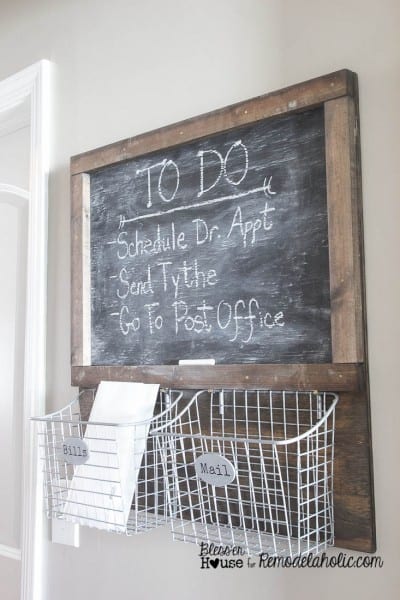 TO DO
-Schedule Dr. Appt
-Send Tythe
-Go To Post Office
Bills
Mail
Bless'er
House for Remodelaholic.com